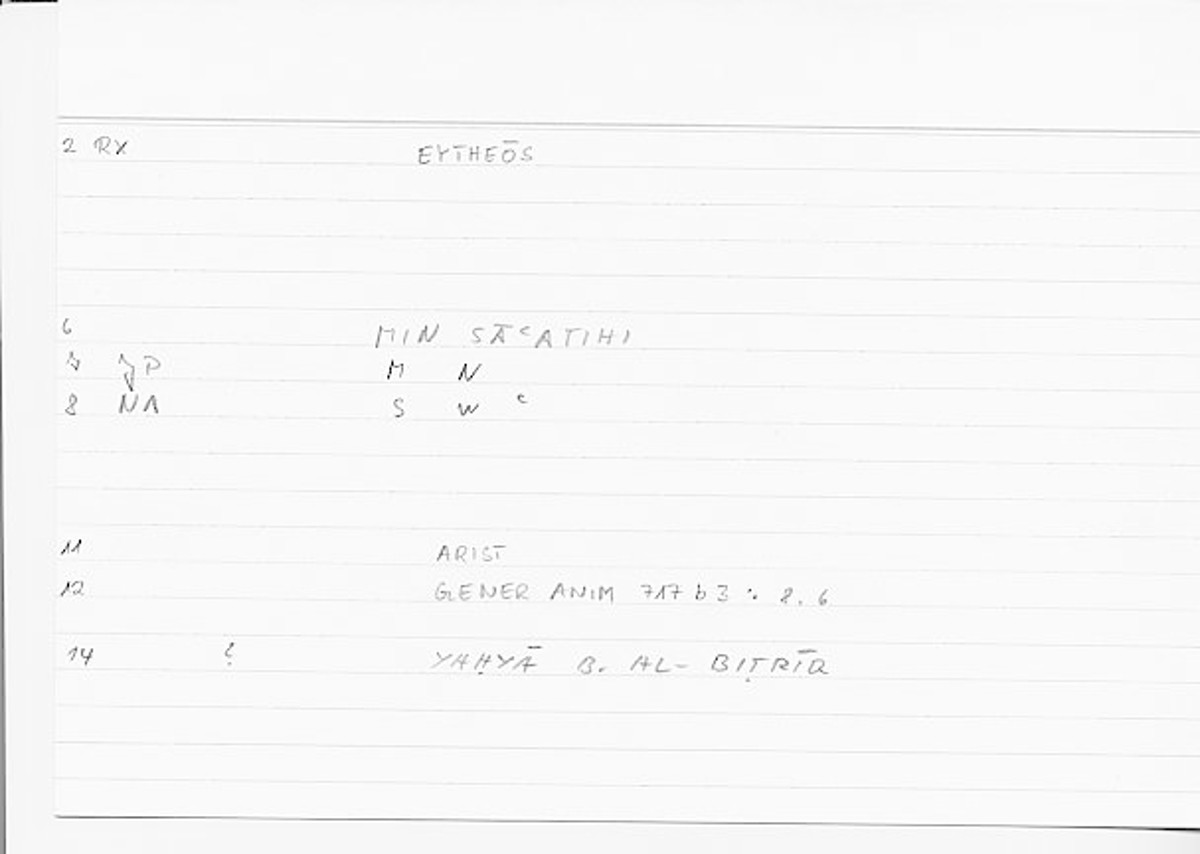 2 RX EYTHEŌS
6 MIN SĀᶜATIHI
7 JP M N
8 NA S W ᶜ
11 ARIST
12 GENER ANIM 717 b 3 : 8.6
14 ? YAḤYĀ B. AL-BIṬRĪQ